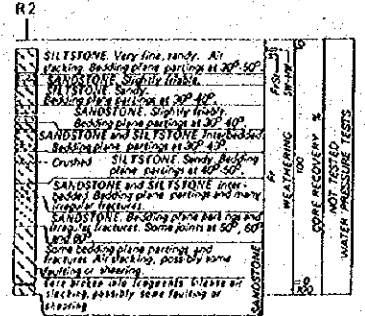 R2
SILTSTONE. Very fine, sandy. Air
slacking. Bedding plane partings at 30°-50°
SANDSTONE. Slightly friable.
SILTSTONE. Sandy.
Bedding plane partings at 30°-40°
SANDSTONE. Slightly friable.
Bedding plane partings at 30°-40°
SANDSTONE and SILTSTONE Interbedded.
Bedding plane partings at 30°-45°
Crushed SILTSTONE. Sandy. Bedding
plane partings at 40°-50°
SANDSTONE and SILTSTONE Inter-
bedded. Bedding plane partings and many
irregular fractures.
SANDSTONE. Bedding plane partings and
irregular fractures. Some joints at 50°, 60°
and 80°
Some bedding plane partings, and
fractures. Air slacking, possibly some
faulting or shearing.
Core broken into fragments.
slacking, possibly some faulting or
shearing
SANDSTONE
Fr
FrSt
SW-HW
WEATHERING
0
100
CORE RECOVERY %
0
100
NOT TESTED
WATER PRESSURE TESTS